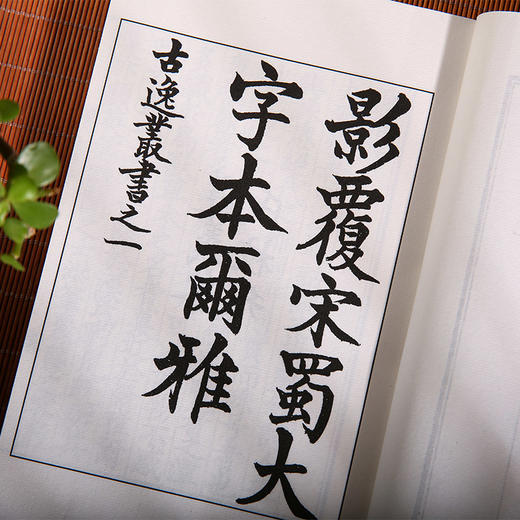 影覆宋蜀大
字本爾雅
古逸叢書之一